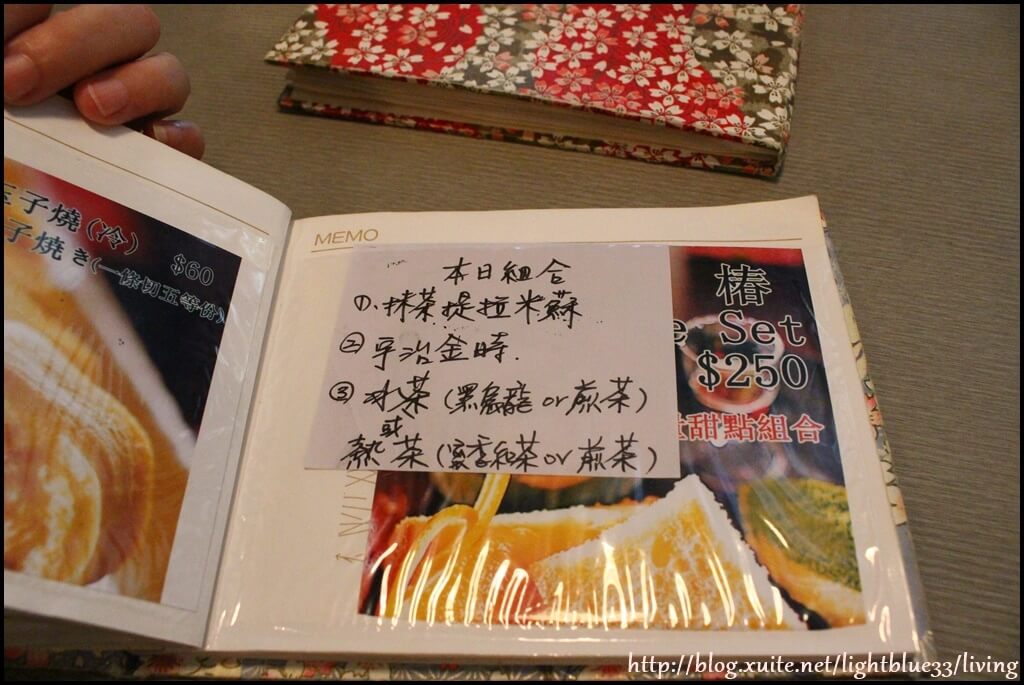 子燒(冷)
子燒き(一條切五等份)
$60
MEMO
本日組合
①、抹茶提拉米蘇
②宇治金時.
③冰茶(黑烏龍 or 煎茶)
或
熱茶(季和茶 or 煎茶)
椿
e Set
$250
甜點組合
http://blog.xuite.net/lightblue33/living